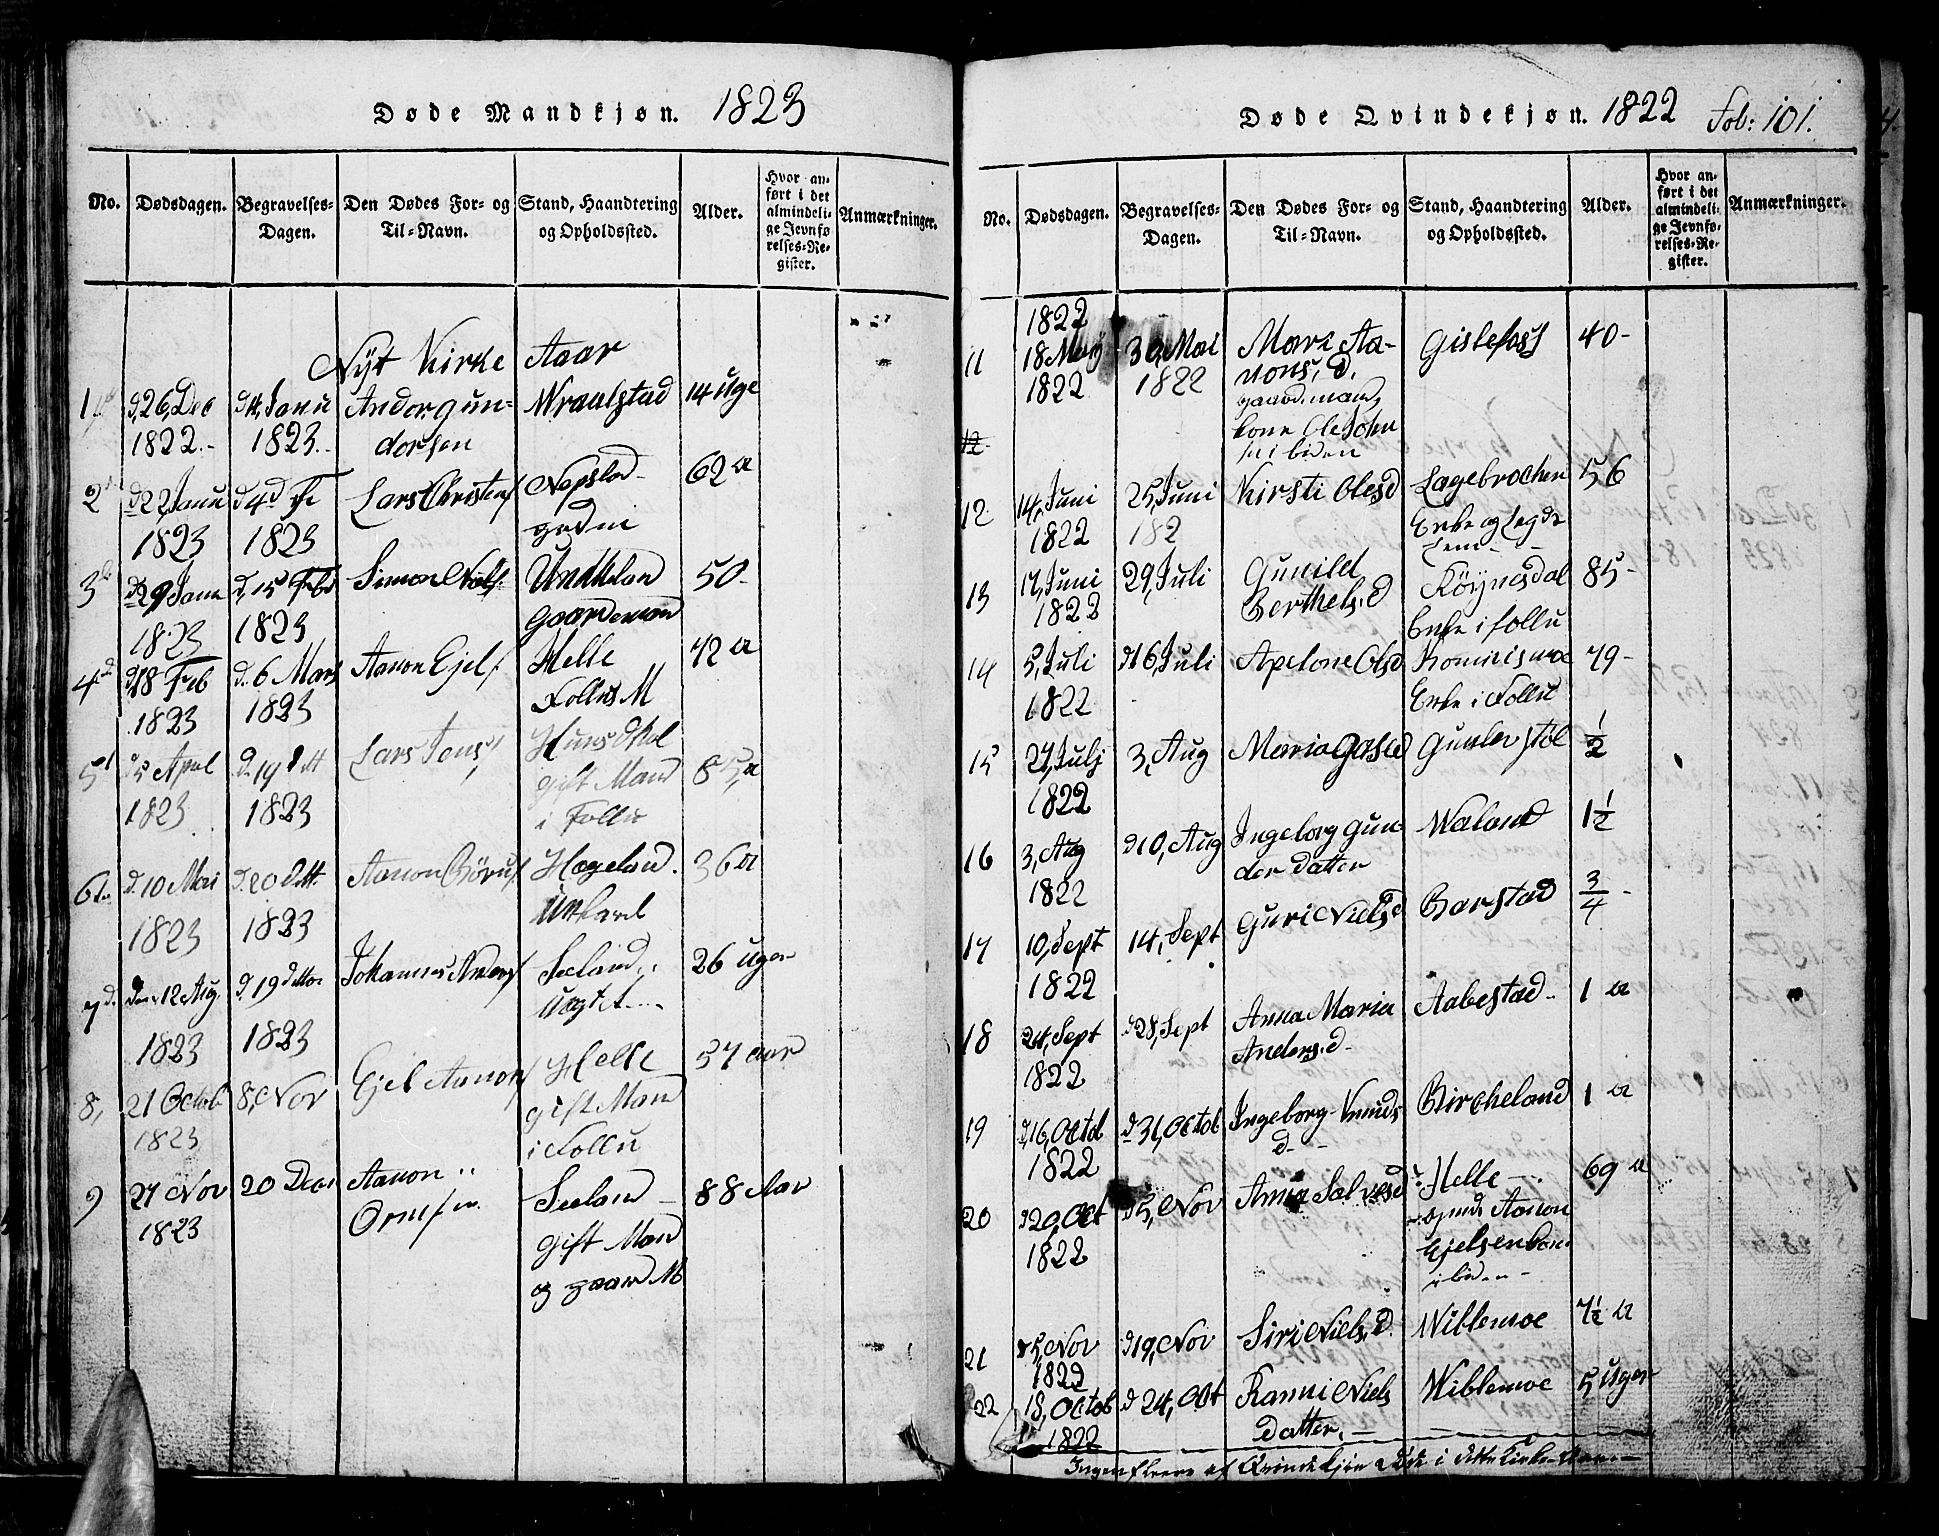 Døde Mandkjøn. 1823
No. Dødsdagen. Begravelses-Dagen. Den Dødes For- og Til-Navn. Stand, Haandtering og Opholdssted. Alder. Hvor anført i det almindelige Jevnførelses-Register. Anmærkninger.
Nÿt Kirke Aaar
1 d. 26, Dec d. 4, Janu Ander gun- Wraalstad 14 uge
1822.- 1823. dersen
2 d. 22 Janu d. 4d Fe Lars Christens 62 a
1823 1823
3 d. 29 Janu d. 15 Feb Simon 50-
1823 1823 Gaardemand
4d d. 18 Feb d. 6 Mars Aanon Ejels Helle 72 a
1823 1823 Follus M
5 d. 5 April d. 19 dtt Lars Jens 85, a
1823 1823 gift Mand
i Follu
6 d. 10 Mai d. 20 dtt. Aanon Börus Hægeland. 36 a
1823 1823 unkarl
7d. den 12 Aug. d. 19 ditto Johannes Anders Seeland 26 uger
1823 1823
8, 21 Octob 8, Nov Ejel Aanons Helle 57 aar
1823 gift Mand
i Follu
9 27 Nov 20 Dec Aanon Seeland 88 Aar
1823 Ormsen gift Mand
og gaard M
Døde Qvindekjøn. 1822 Fol: 101.
No. Dødsdagen. Begravelses-Dagen. Den Dødes For- og Til-Navn. Stand, Haandtering og Opholdssted. Alder. Hvor anført i det almindelige Jevnførelses-Register. Anmærkninger.
1822
11 18 May 30, Mai Mare Aa- Gislefoss 40-
1822 1822 nons. d.
gaard.mand
kone Ole John
12
12 14, Juni 25, Juni Kirsti Olesd 56
1822 182 Enke og Legde
lem
13 17, Juni 29, Juli Gunild Röynesdal 85-
1822 Berthels. d Enke i follu
14 5, Juli d. 16, Juli Apelone Olsd 79-
1822 Enke i Follu
15 27, Julj 3, Aug Maria 1/2
1822
16 3, Aug d. 10, Aug Ingeborg Gun- Waland 1 1/2
1822 der datter
17 10, Sept 14, Sept Guri Nielsd Barstad 3/4-
1822
18 24, Sept d. 28, Sept Anna Maria Aabestad. 1 a
1822 Anders. d-
19 d. 16, Octob d. 31, Octob Ingeborg Knuds Bircheland 1 a
1822 d-
20 d. 20, Oct d. 5, Nov Anna Salvesd Helle 69 a
1822 Aanon
Ejelsen kone
21 d. 5, Nov d. 19, Nov Siri Niels. d. Wiblemoe 7 1/2 a
1822
22 18, Octob d. 24, Oct Ranni Niels Wiblemoe 5 Uger
1822 Datter.-
Ingen fleere af Qvindekjön döde i dette Kirke-Aar.-